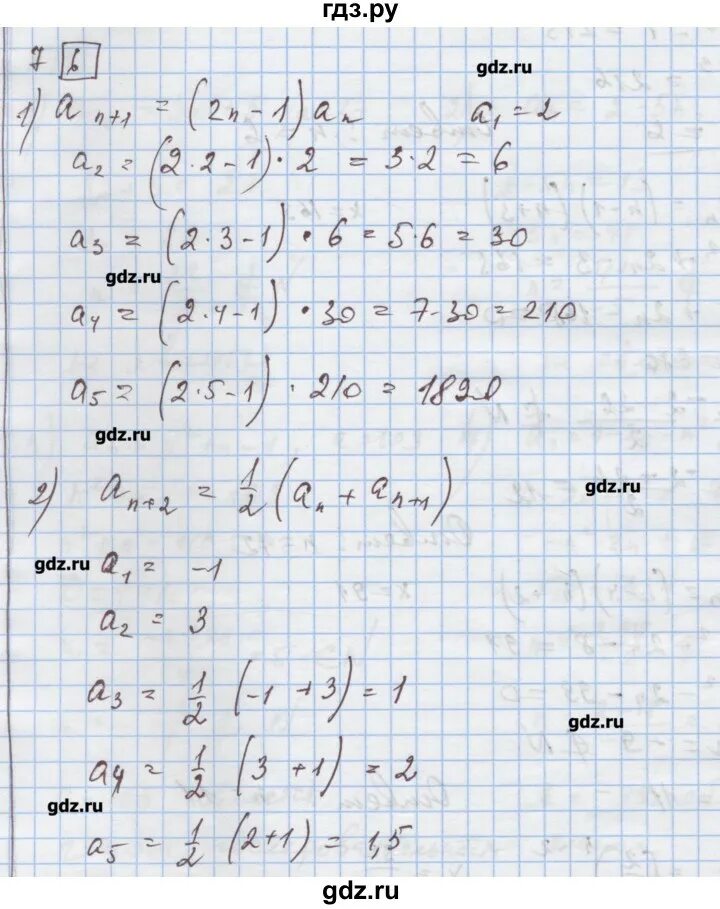 гдз.ру
7 6
gdz.ru
1) a n+1 = (2n-1) an   a1 = 2
a2 = (2·2-1)·2 = 3·2 = 6
a3 = (2·3-1)·6 = 5·6 = 30
gdz.ru
a4 = (2·4-1)·30 = 7·30 = 210
a5 = (2·5-1)·210 = 1890
gdz.ru
2) a n+2 = 1/2 (an + an+1)
gdz.ru
gdz.ru
a1 = -1
a2 = 3
a3 = 1/2 (-1+3) = 1
gdz.ru
a4 = 1/2 (3+1) = 2
gdz.ru
a5 = 1/2 (2+1) = 1,5
gdz.ru